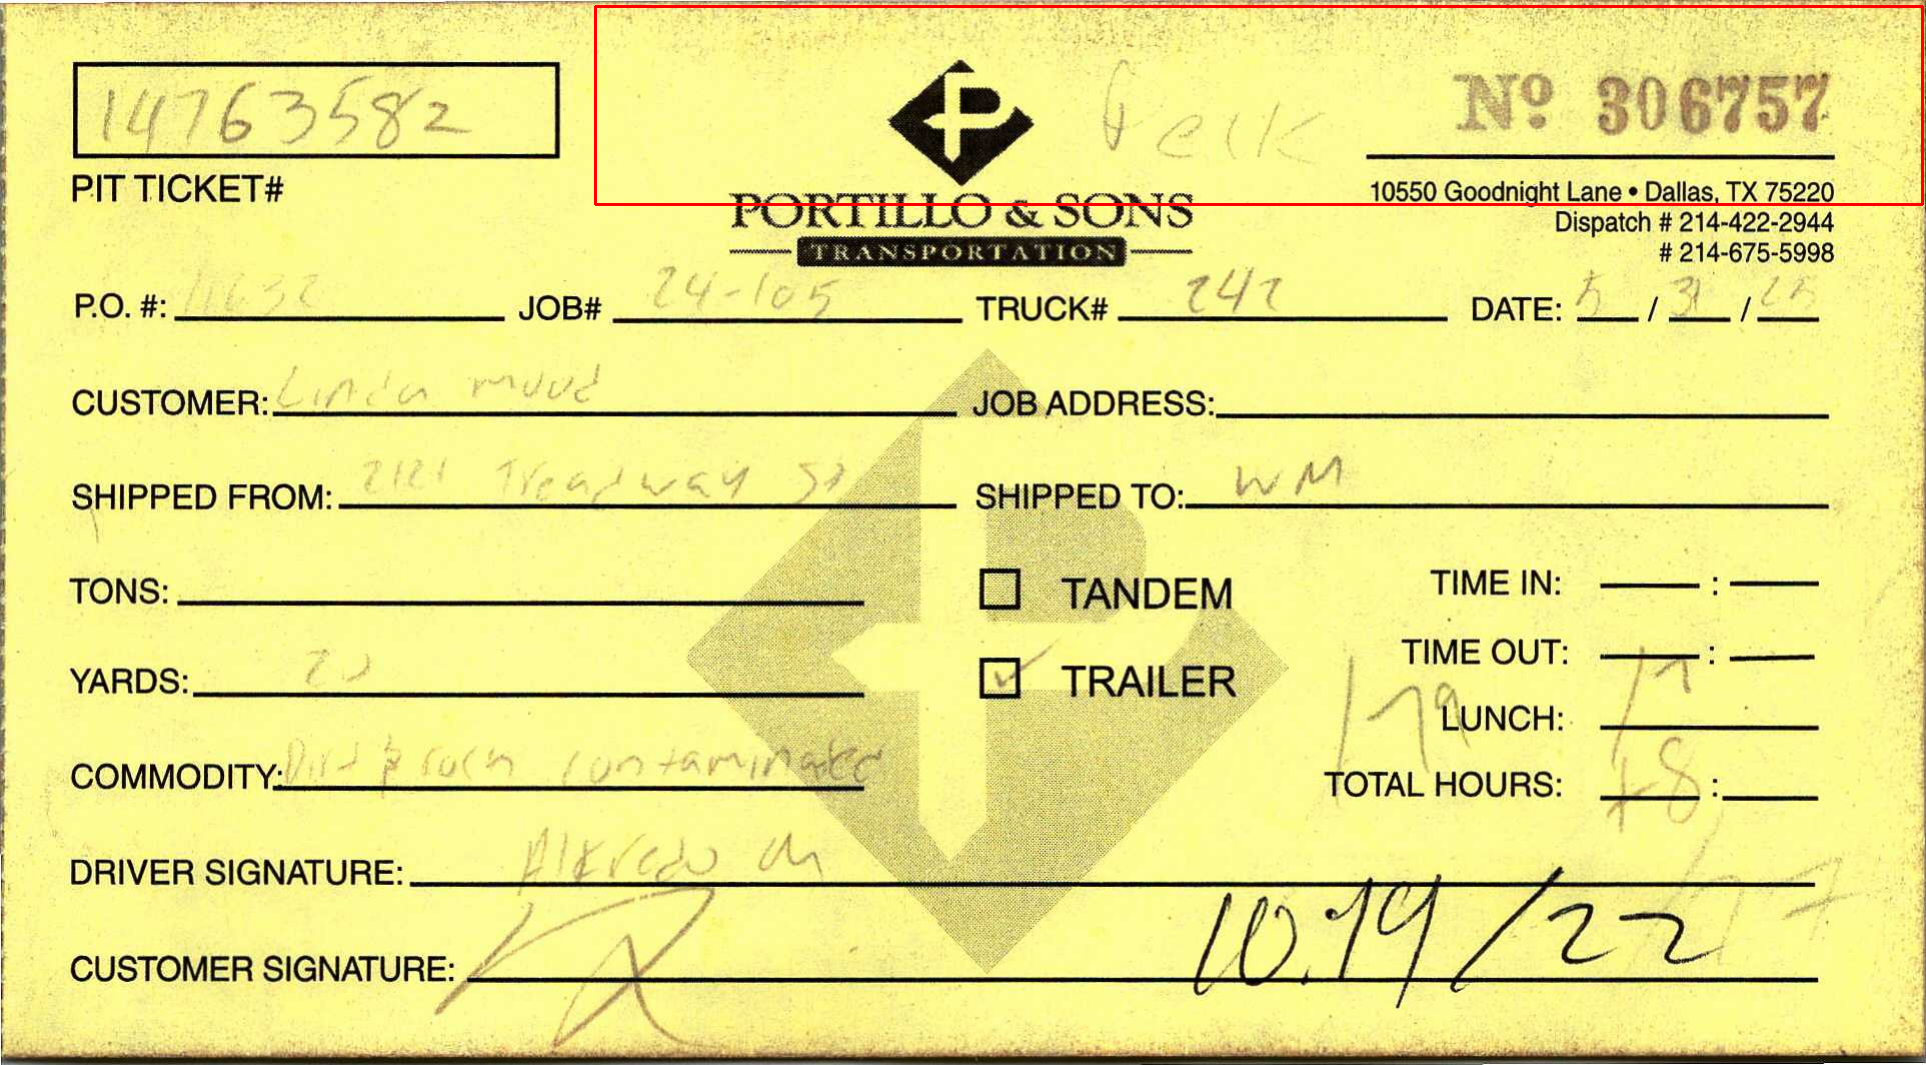 14763582
PIT TICKET#
Nº 306757
PORTILLO & SONS
TRANSPORTATION
10550 Goodnight Lane • Dallas, TX 75220
Dispatch # 214-422-2944
# 214-675-5998
P.O. #: 11632 JOB# 24-105 TRUCK# 242 DATE: 5 / 31 / 25
CUSTOMER: Linda mood JOB ADDRESS:
SHIPPED FROM: 2121 Treadway St SHIPPED TO: WM
TONS: TANDEM TIME IN: :
YARDS: 20 TRAILER TIME OUT: :
LUNCH:
COMMODITY: Dirt & rock contaminated TOTAL HOURS: :
DRIVER SIGNATURE: Alfredo M
CUSTOMER SIGNATURE: 10.19/22